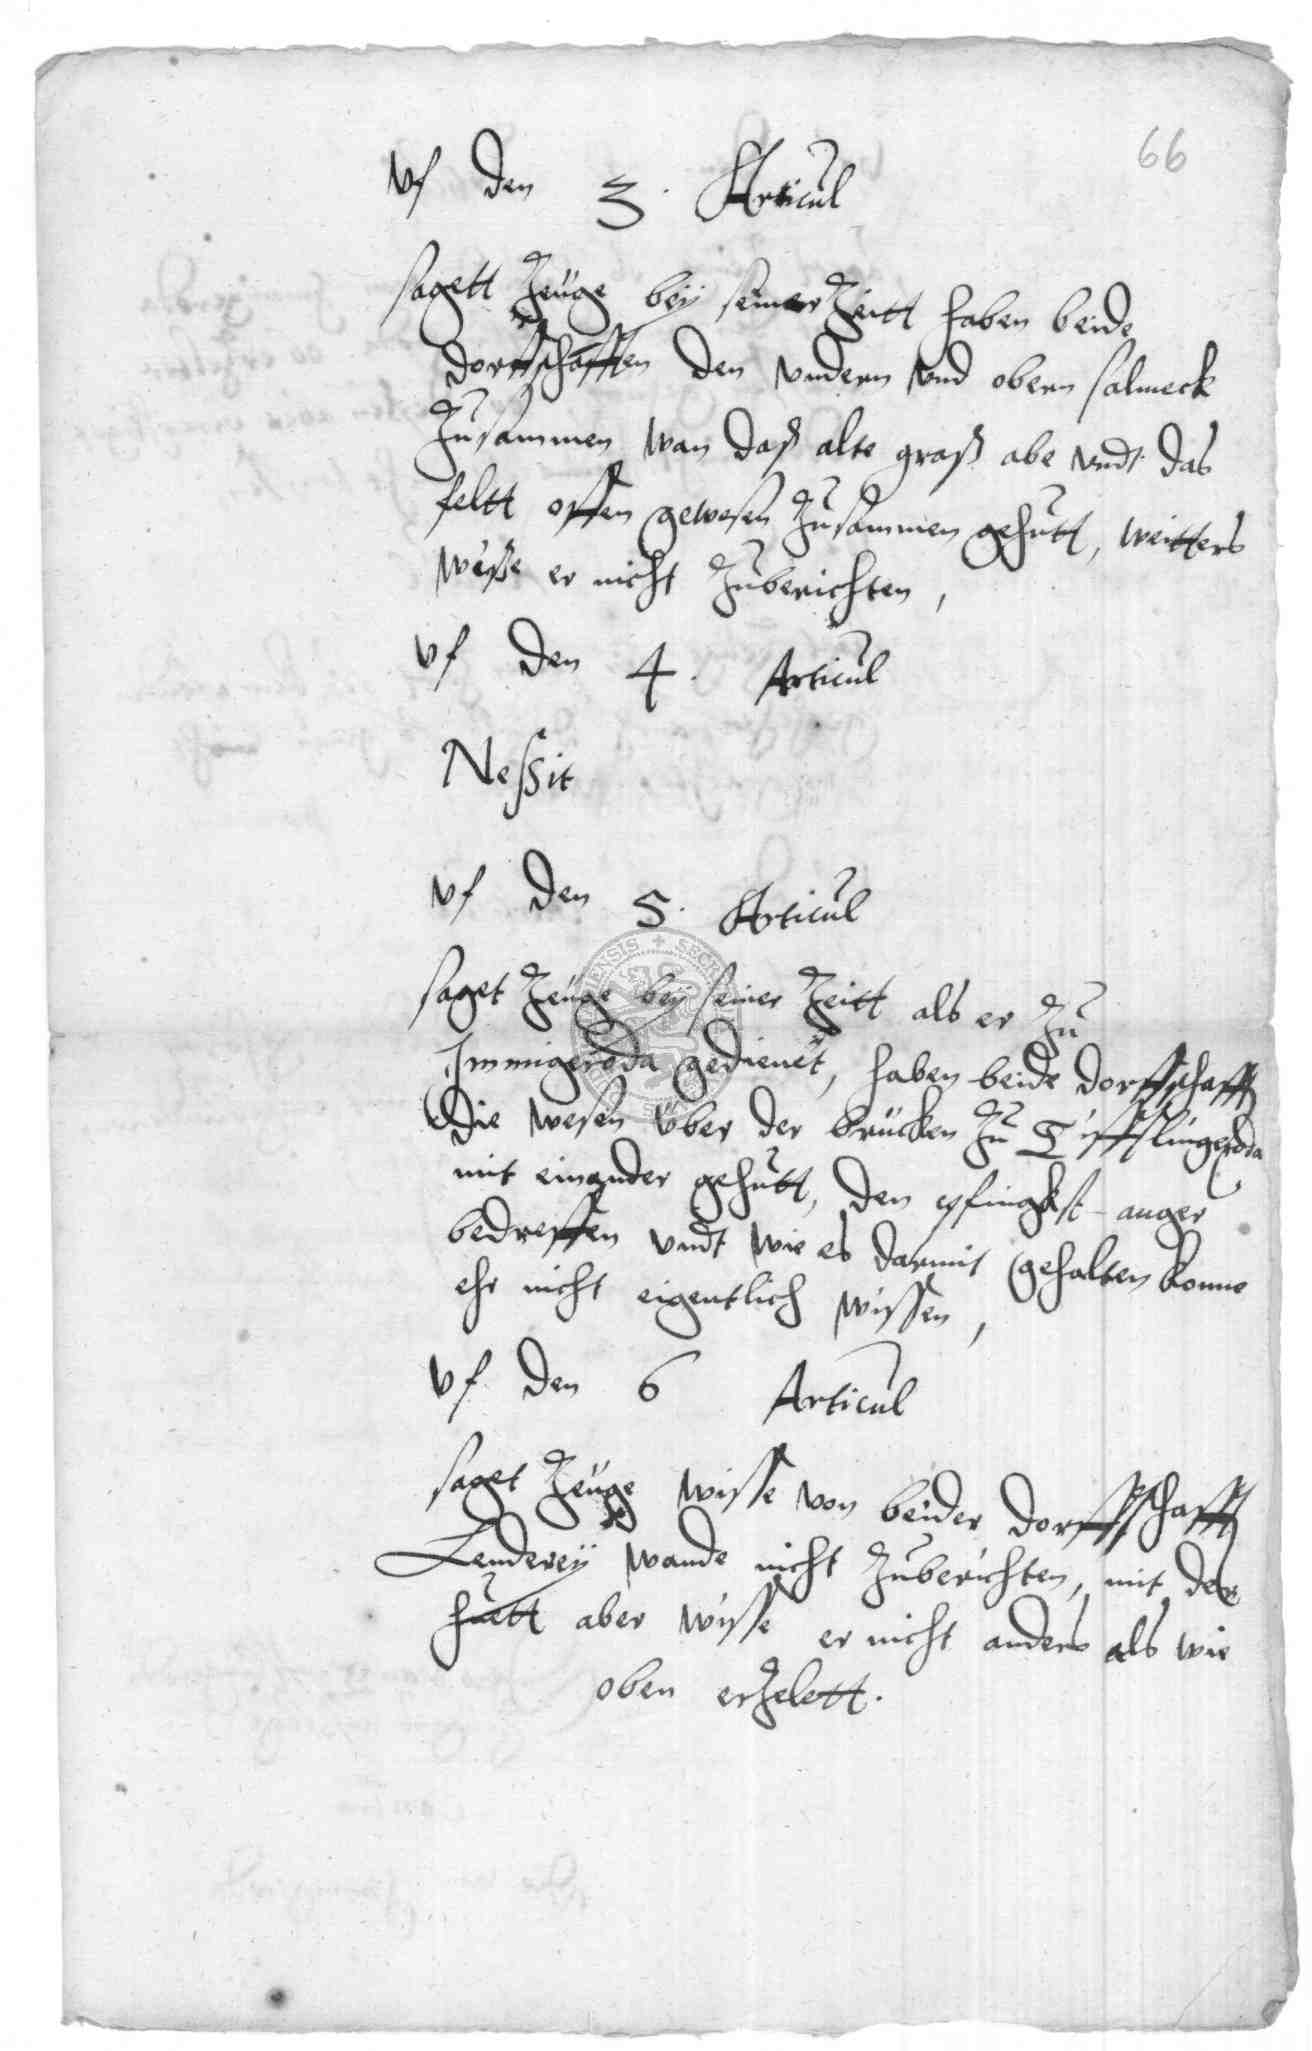 66
Vf den 3. Articul
sagett Zeuge beÿ seiner Zeitt haben beide
dorffschafften den vndern vnd obern salmeck
Zusammen wan daß alte graß abe vndt das
feltt offen gewesen Zusammen gehutt, weitters
wuße er nicht Zuberichten,
Vf den 4. Articul
Neßit
Vf den 5. Articul
saget Zeuge beÿ seiner Zeitt als er Zu
Immigeroda gedienet, haben beide dorffschafft
die wesen über der brücken Zu
mit einander gehutt, den pfingkst-anger
bedreffen vndt wie es darmit gehalten konne
ehr nicht eigentlich wissen,
Vf den 6 Articul
saget Zeuge wisse von beider dorffschafft
Lendereÿ wande nicht Zuberichten, mit der
huett aber wisse er nicht anders als wie
oben erZelett.